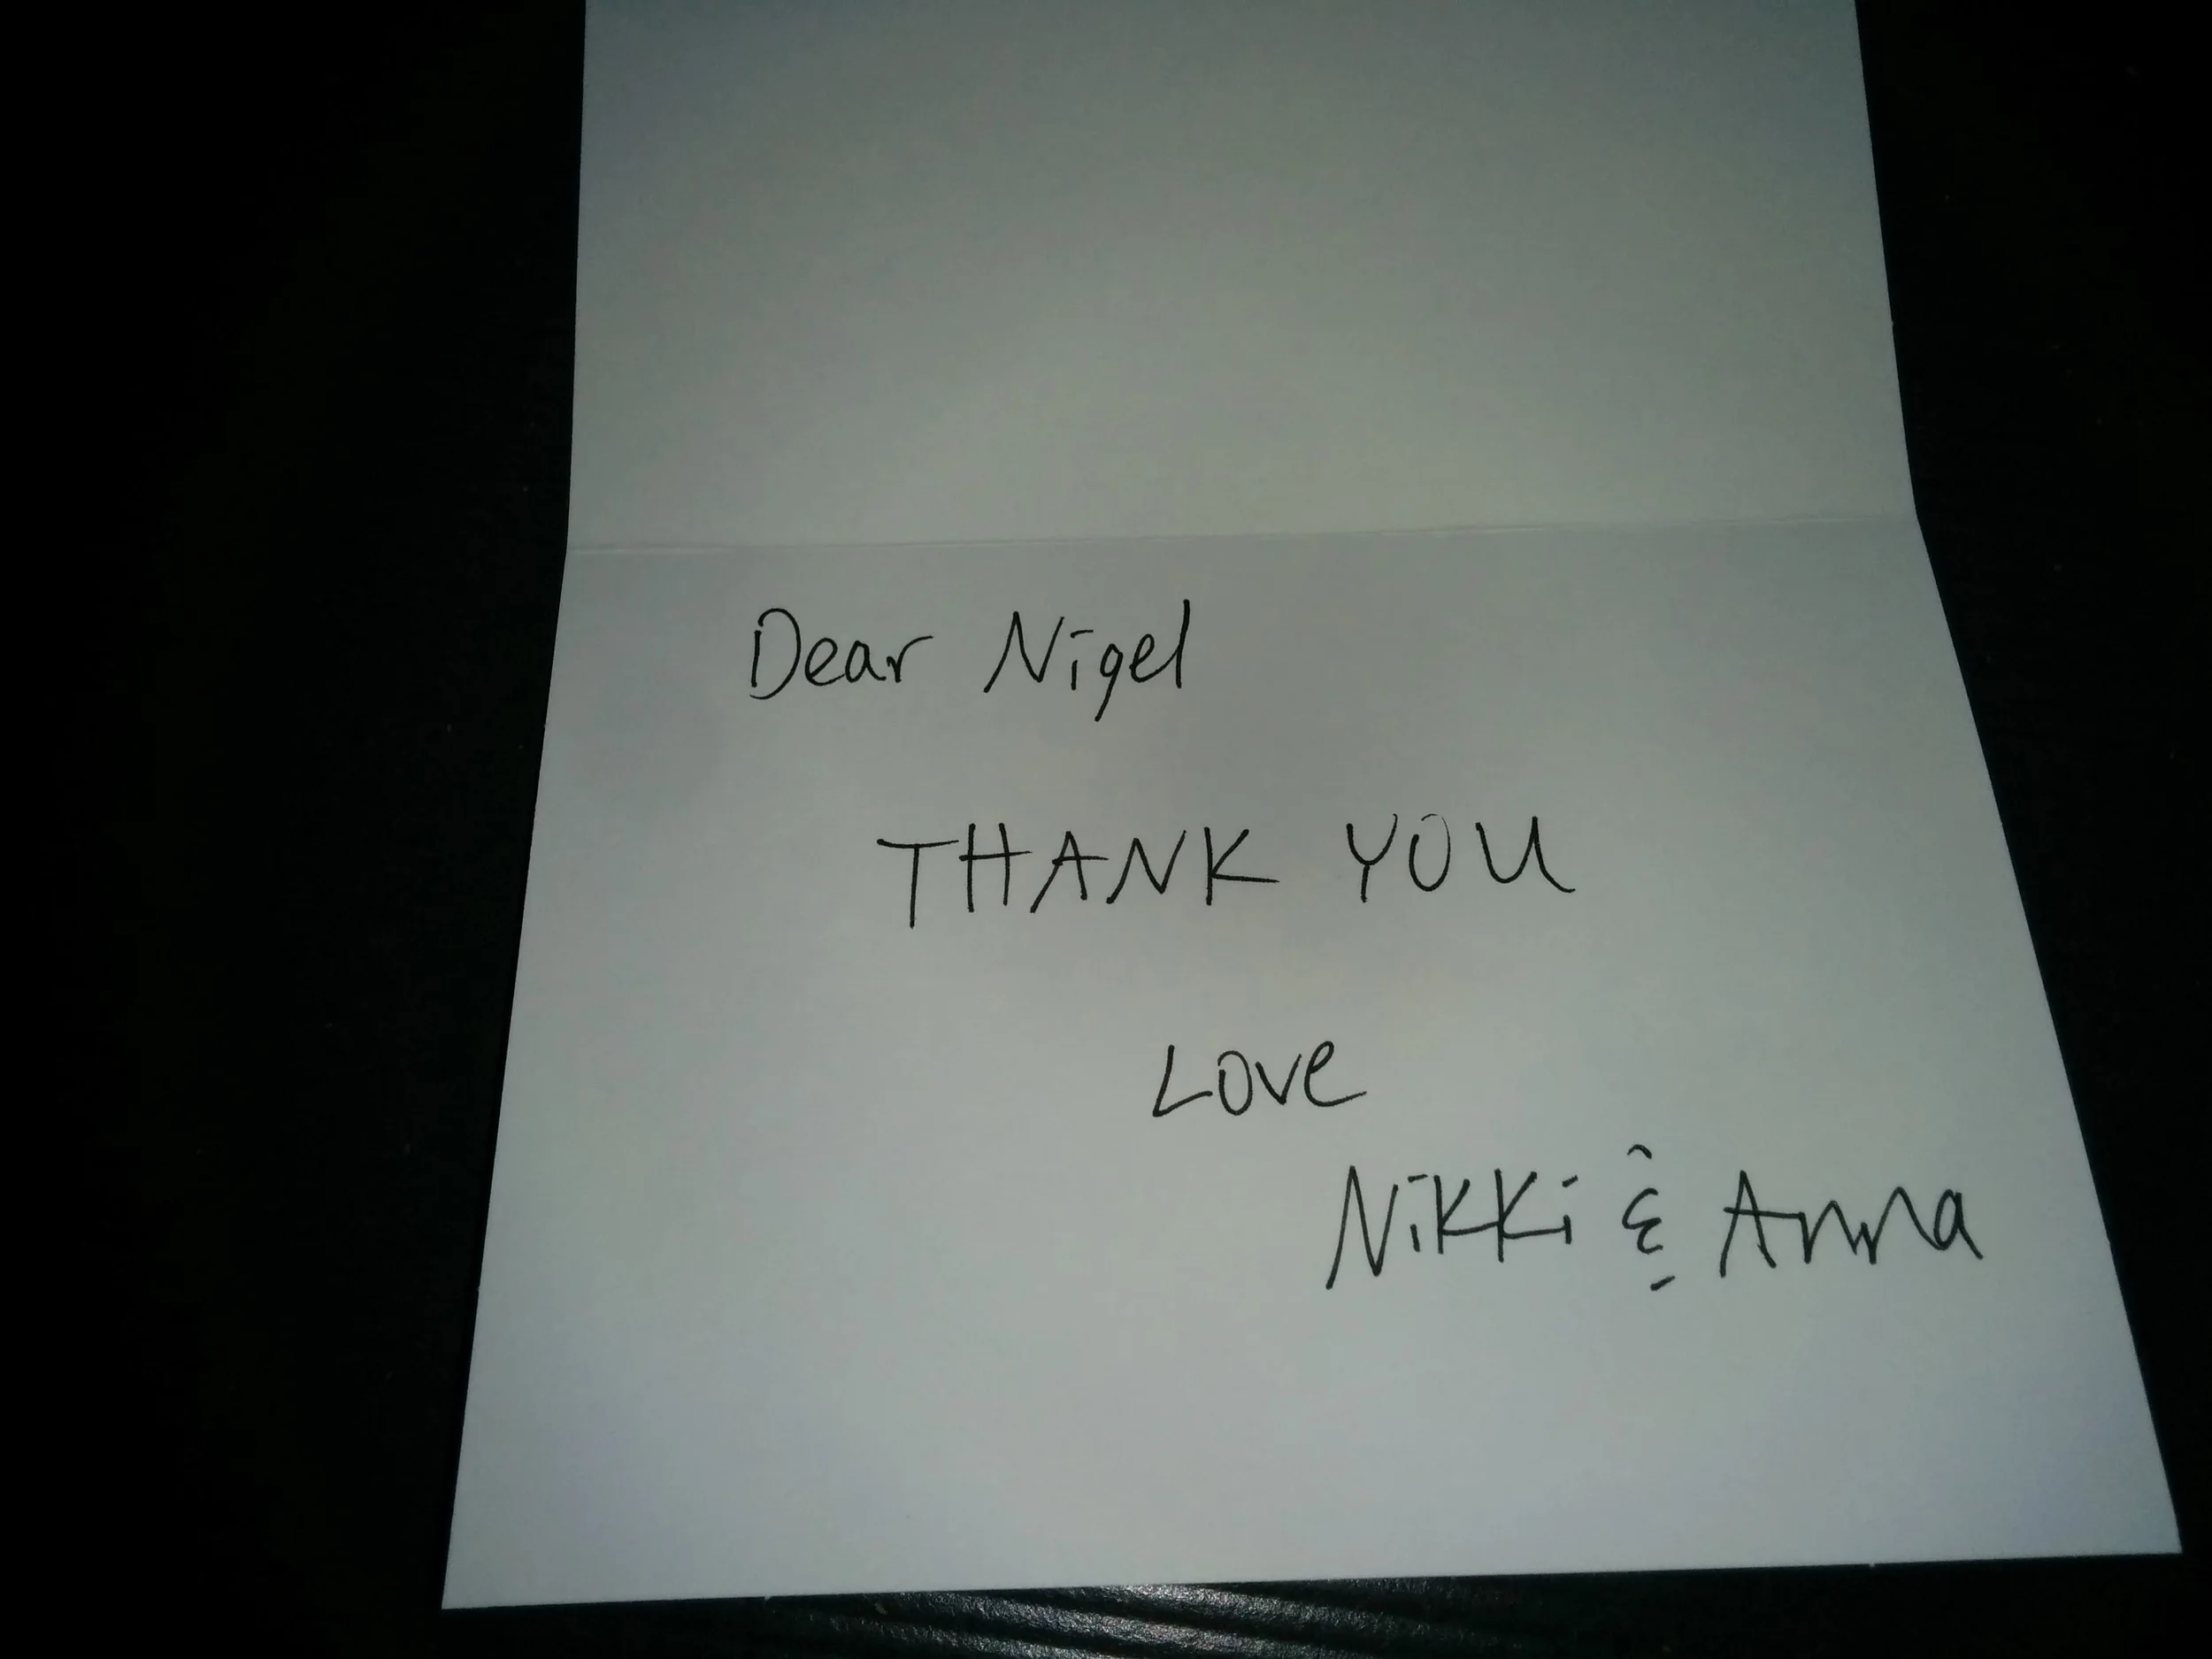 Dear Nigel
THANK YOU
Love
Nikki & Anna